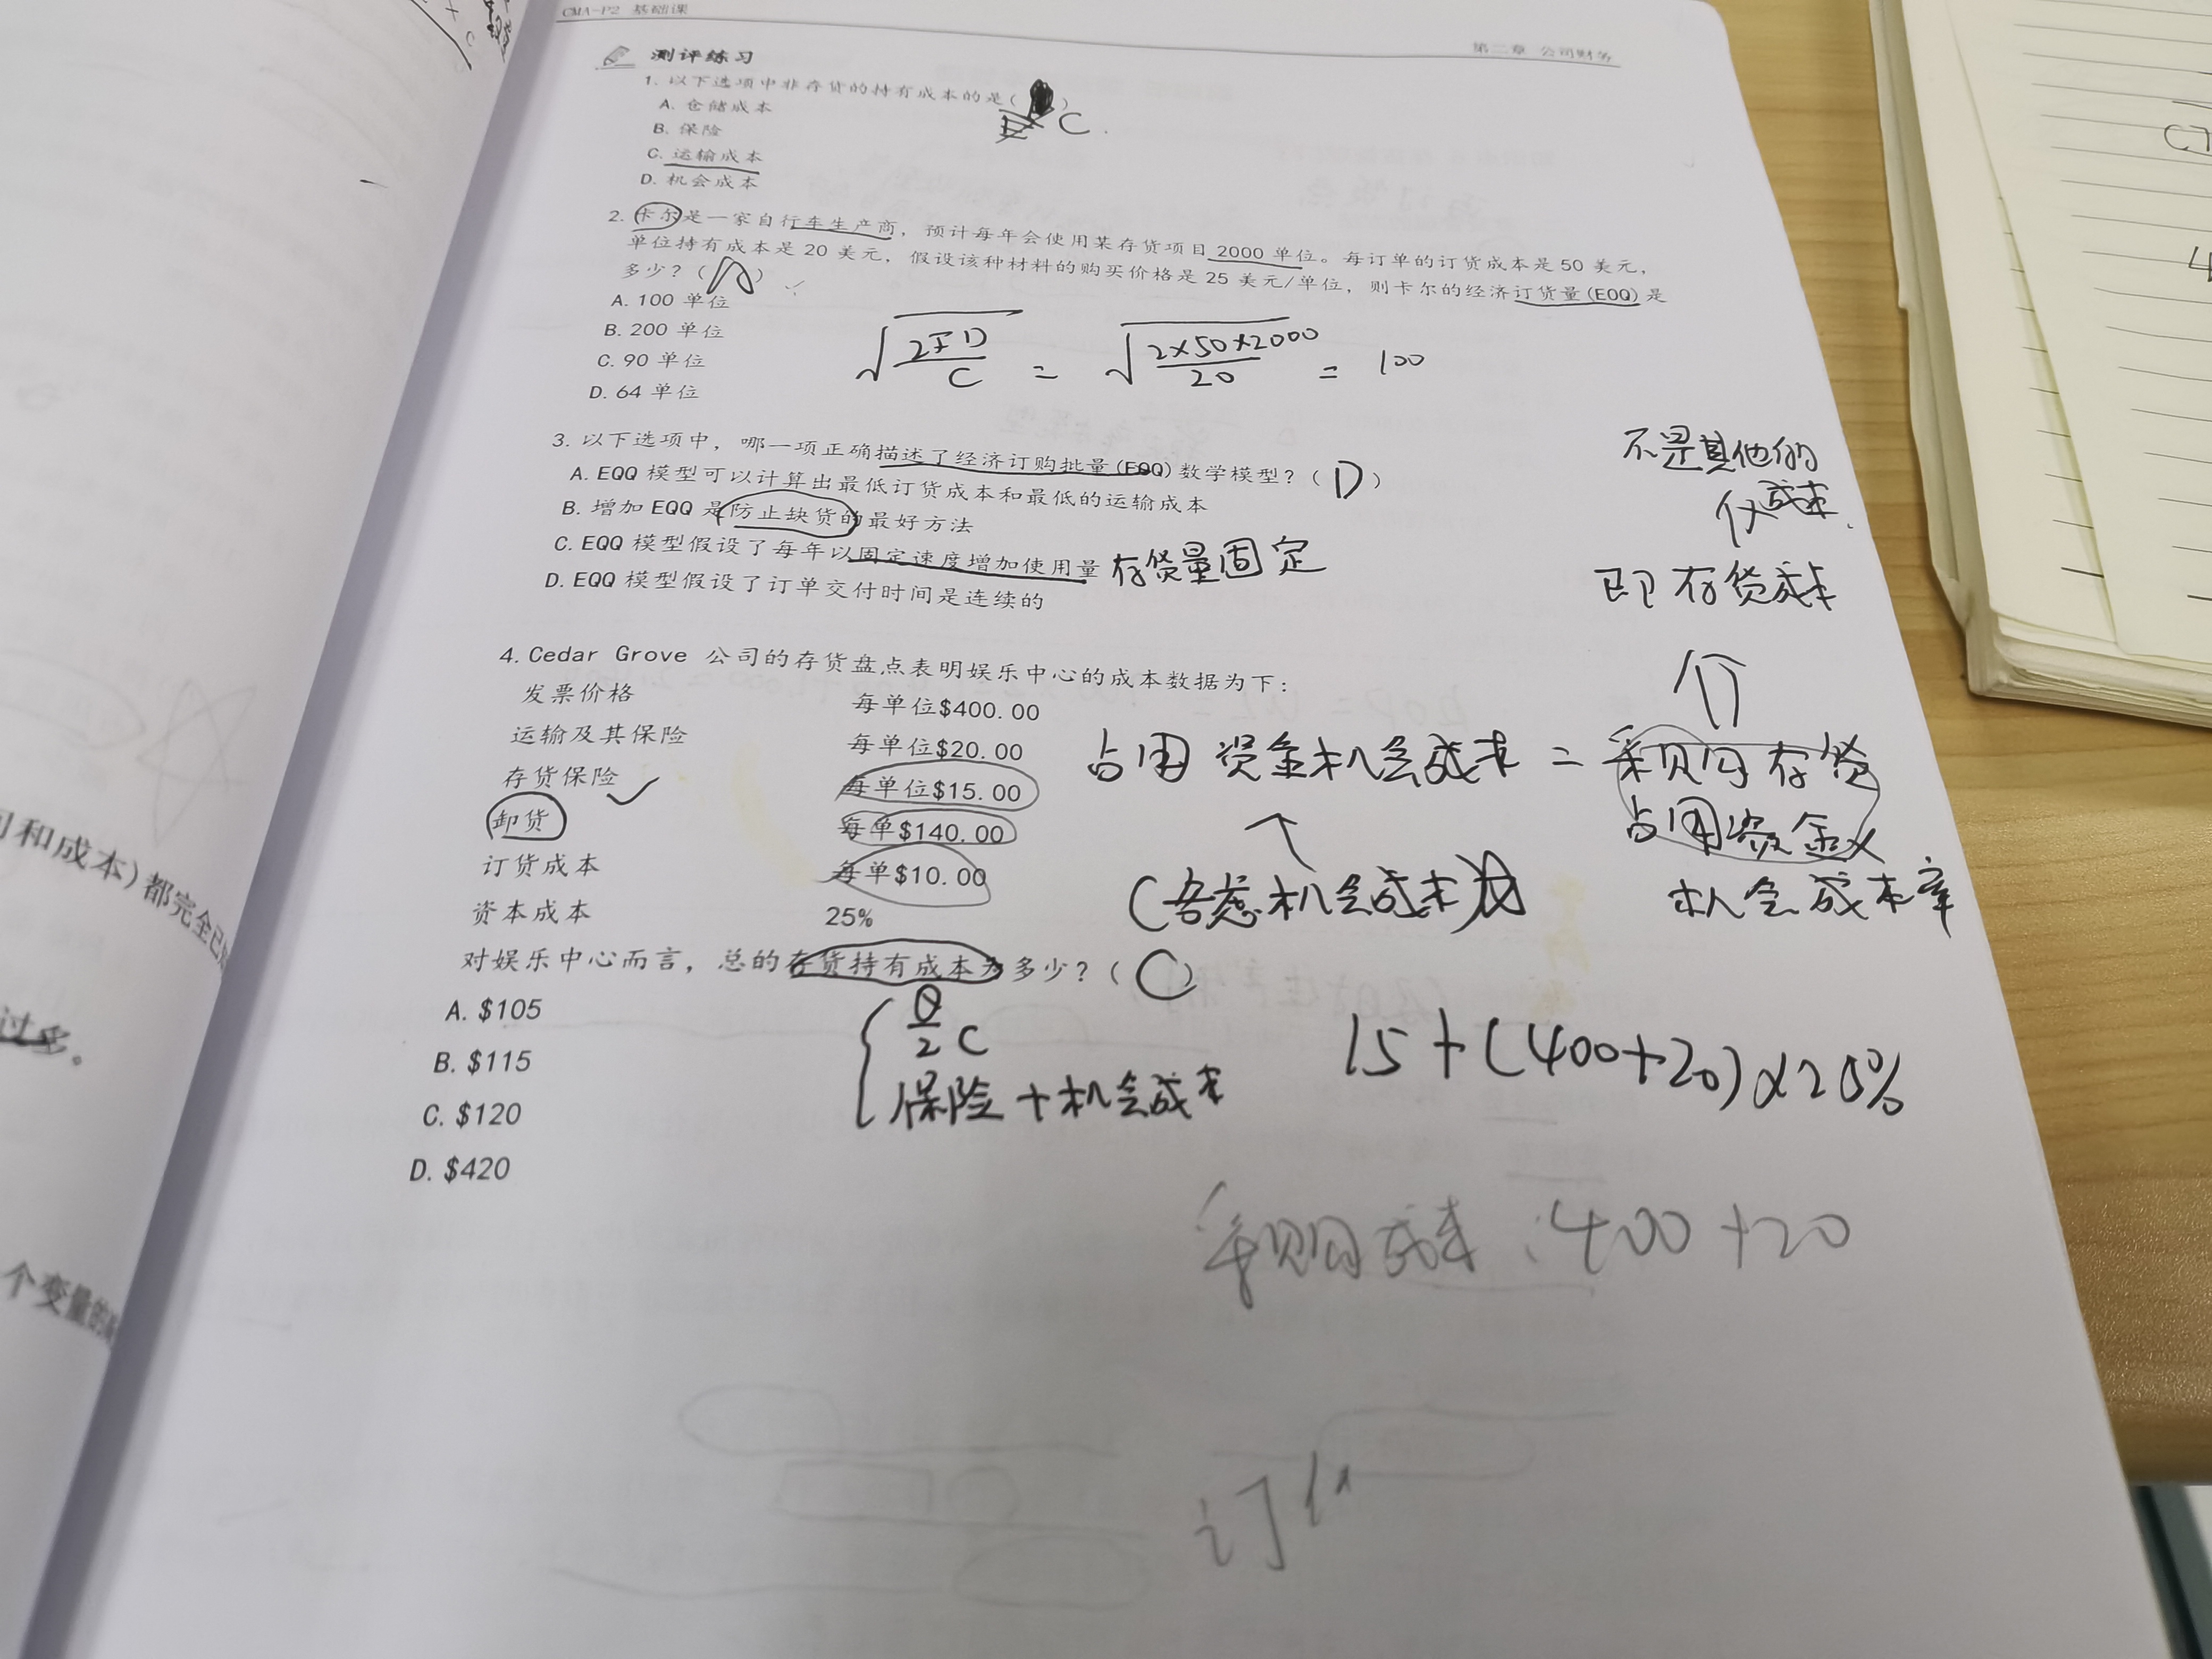 CMA-P2 基础课
第二章 公司财务
测评练习
1. 以下选项中非存货的持有成本的是( )
C
A. 仓储成本
B. 保险
C. 运输成本
D. 机会成本
2. 卡尔是一家自行车生产商，预计每年会使用某存货项目 2000 单位。每订单的订货成本是 50 美元，
单位持有成本是 20 美元，假设该种材料的购买价格是 25 美元/单位，则卡尔的经济订货量(EOQ)是
多少？( A )
A. 100 单位
B. 200 单位
C. 90 单位
D. 64 单位
√(2FD/C) = √(2×50×2000/20) = 100
3. 以下选项中，哪一项正确描述了经济订购批量(EOQ)数学模型？( D )
A. EQQ 模型可以计算出最低订货成本和最低的运输成本
B. 增加 EQQ 是防止缺货的最好方法
C. EQQ 模型假设了每年以固定速度增加使用量 存货量固定
D. EQQ 模型假设了订单交付时间是连续的
不是其他的
成本
仅
即存货成本
4. Cedar Grove 公司的存货盘点表明娱乐中心的成本数据为下：
发票价格 每单位$400.00
运输及其保险 每单位$20.00
存货保险 每单位$15.00
卸货 每单$140.00
订货成本 每单$10.00
资本成本 25%
占用资金机会成本 = 采购存货
占用资金×
机会成本率
(考虑机会成本)
对娱乐中心而言，总的存货持有成本为多少？( C )
A. $105
B. $115
C. $120
D. $420
Q/2 C
保险+机会成本
15+(400+20)×25%
采购成本：400+20
订
和成本)都完全已
过多。
个变量的